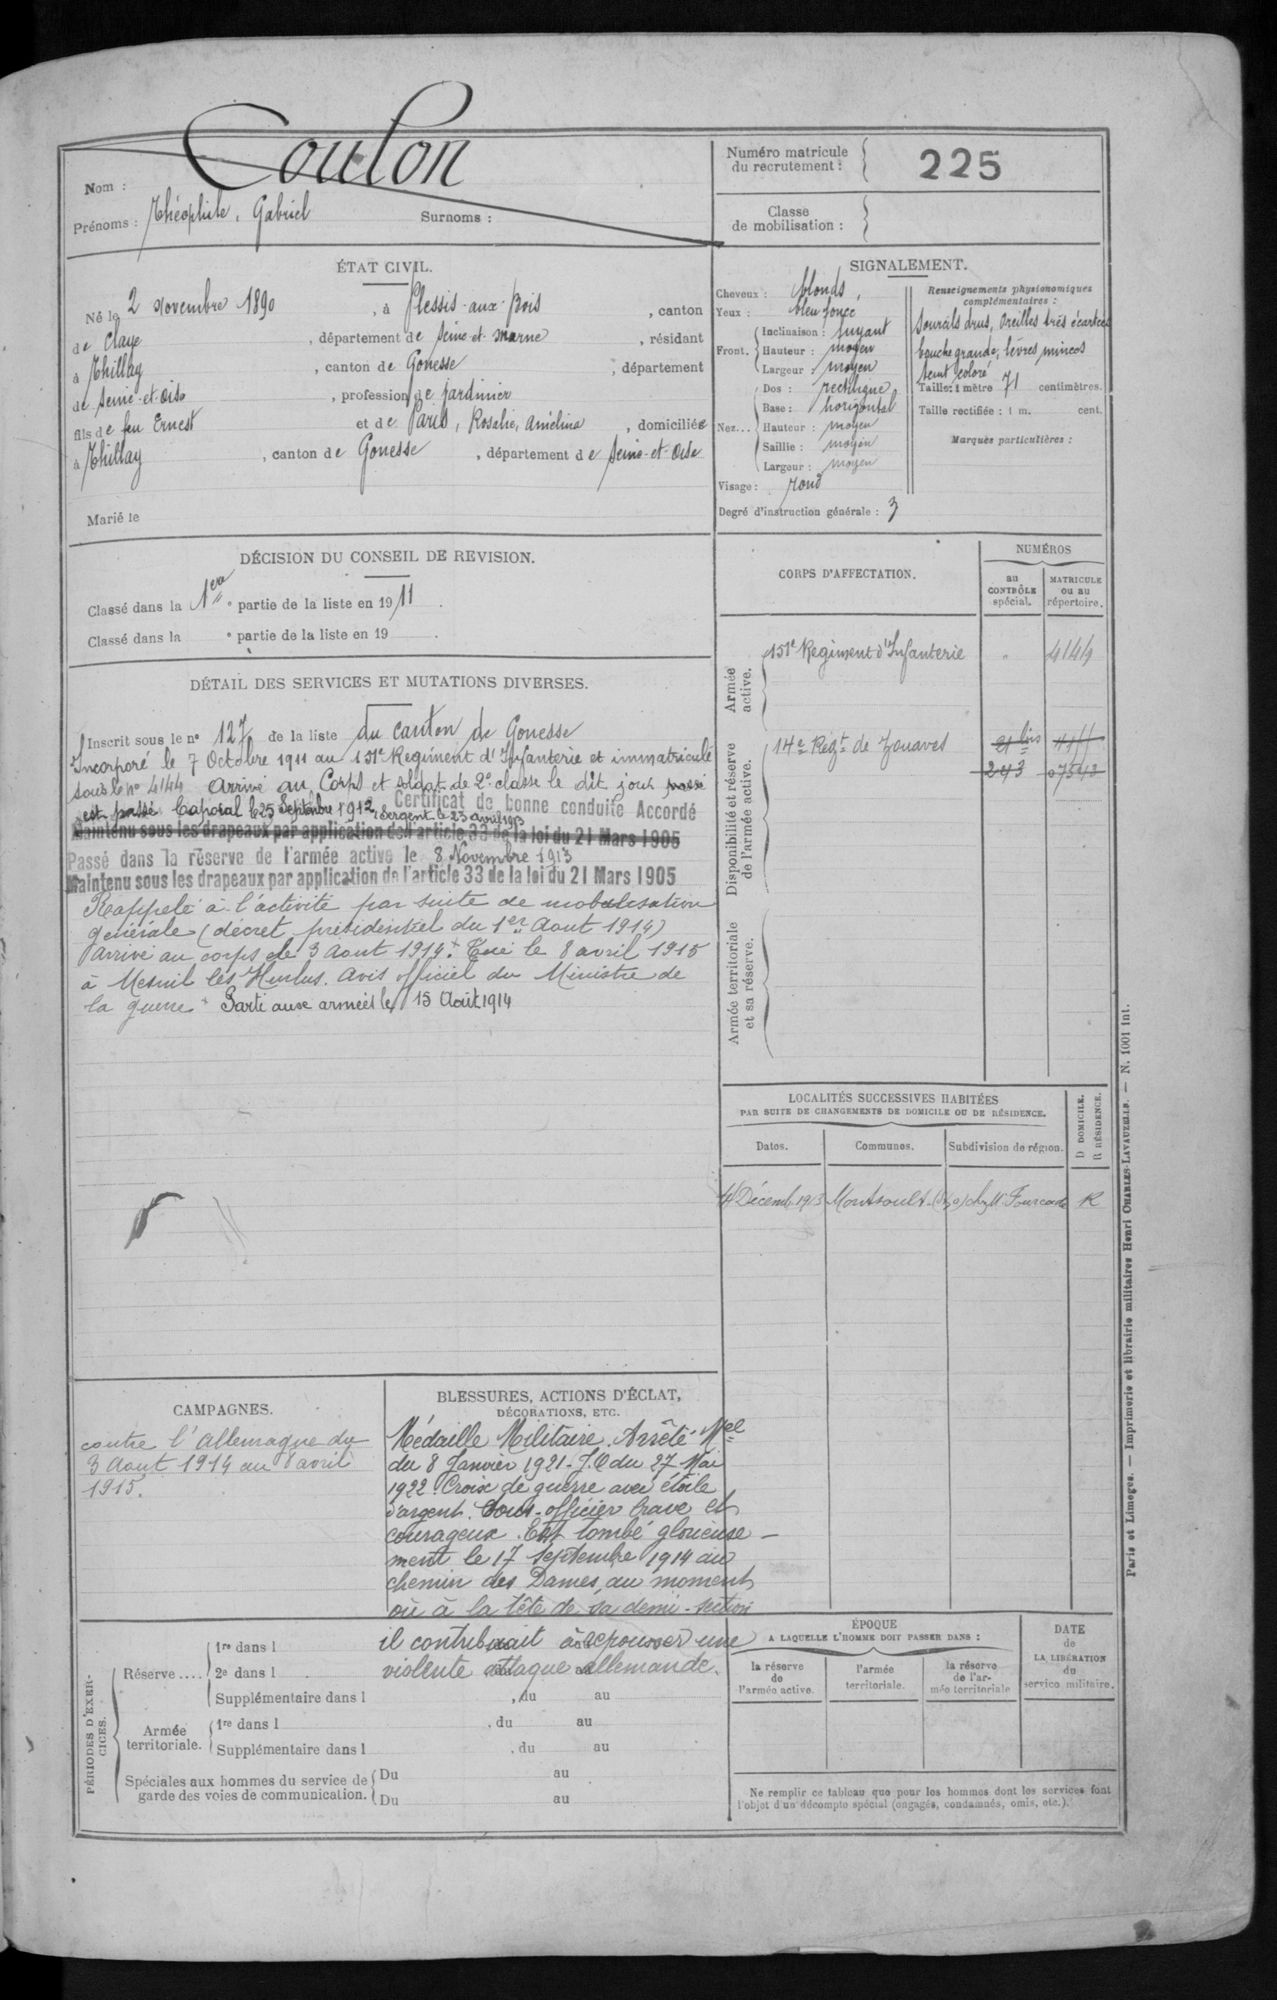 Nom : Coulon
Prénoms : Théophile, Gabriel Surnoms :
Numéro matricule du recrutement : 225
Classe de mobilisation :
ÉTAT CIVIL.
Né le 2 Novembre 1890, à Plessis-aux-Bois, canton
de Claye, département de Seine-et-Marne, résidant
à Thillay, canton de Gonesse, département
de Seine-et-Oise, profession de jardinier
fils de feu Ernest et de Paris, Rosalie, Amélina, domiciliée
à Thillay, canton de Gonesse, département de Seine-et-Oise
Marié le
SIGNALEMENT.
Cheveux : blonds,
Yeux : bleu foncé
Front. Inclinaison : fuyant
Hauteur : moyen
Largeur : moyen
Nez... Dos : rectiligne
Base : horizontal
Hauteur : moyen
Saillie : moyen
Largeur : moyen
Visage : rond
Renseignements physionomiques complémentaires :
Sourcils drus, oreilles très écartées
bouche grande, lèvres minces
teint coloré
Taille : 1 mètre 71 centimètres.
Taille rectifiée : 1 m. cent.
Marques particulières :
Degré d'instruction générale : 3
DÉCISION DU CONSEIL DE REVISION.
Classé dans la 1ere partie de la liste en 1911.
Classé dans la e partie de la liste en 19 .
DÉTAIL DES SERVICES ET MUTATIONS DIVERSES.
Inscrit sous le no 127 de la liste du canton de Gonesse
Incorporé le 7 Octobre 1911 au 151e Régiment d'Infanterie et immatriculé
sous le no 4144 Arrivé au Corps et soldat de 2e classe le dit jour passé
est passé Caporal le 25 Septembre 1912, Sergent le 23 avril 1913 Certificat de bonne conduite Accordé
Maintenu sous les drapeaux par application de l'article 33 de la loi du 21 Mars 1905
Passé dans la réserve de l'armée active le 8 Novembre 1913
Maintenu sous les drapeaux par application de l'article 33 de la loi du 21 Mars 1905
Rappelé à l'activité par suite de mobilisation
générale (décret présidentiel du 1er Aout 1914)
Arrivé au corps le 3 Aout 1914. + Tué le 8 avril 1915
à Mesnil les Hurlus. Avis officiel du Ministre de
la guerre + Parti aux armées le 15 Août 1914
CORPS D'AFFECTATION.
NUMÉROS
au CONTRÔLE spécial.
MATRICULE ou au répertoire.
Armée active.
151e Régiment d'Infanterie " 4144
Disponibilité et réserve de l'armée active.
14e Régt de Zouaves
243 07543
Armée territoriale et sa réserve.
LOCALITÉS SUCCESSIVES HABITÉES
PAR SUITE DE CHANGEMENTS DE DOMICILE OU DE RÉSIDENCE.
Dates. Communes. Subdivision de région. D DOMICILE. R RÉSIDENCE.
4 Décemb. 1913 Montsoult (S. & O) chez Mr Fourcade R
CAMPAGNES.
contre l'Allemagne du
3 Aout 1914 au 8 avril
1915.
BLESSURES, ACTIONS D'ÉCLAT,
DÉCORATIONS, ETC.
Médaille Militaire. Arrêté Mel
du 8 Janvier 1921 - J.O du 27 Mai
1922. Croix de guerre avec étoile
d'argent. Sous-officier brave et
courageux. Est tombé glorieuse-
ment le 17 Septembre 1914 au
chemin des Dames, au moment
où à la tête de sa demi-section
il contribuait à repousser une
violente attaque allemande.
PÉRIODES D'EXERCICES.
Réserve .... 1re dans l
2e dans l
Supplémentaire dans l , du au
Armée territoriale. 1re dans l , du au
Supplémentaire dans l , du au
Spéciales aux hommes du service de garde des voies de communication. Du au
Du au
ÉPOQUE
A LAQUELLE L'HOMME DOIT PASSER DANS :
la réserve de l'armée active.
l'armée territoriale.
la réserve de l'armée territoriale
DATE de LA LIBÉRATION du service militaire.
Ne remplir ce tableau que pour les hommes dont les services font
l'objet d'un décompte spécial (engagés, condamnés, omis, etc.).
Paris et Limoges. — Imprimerie et librairie militaires Henri CHARLES-LAVAUZELLE. — N. 1001 int.